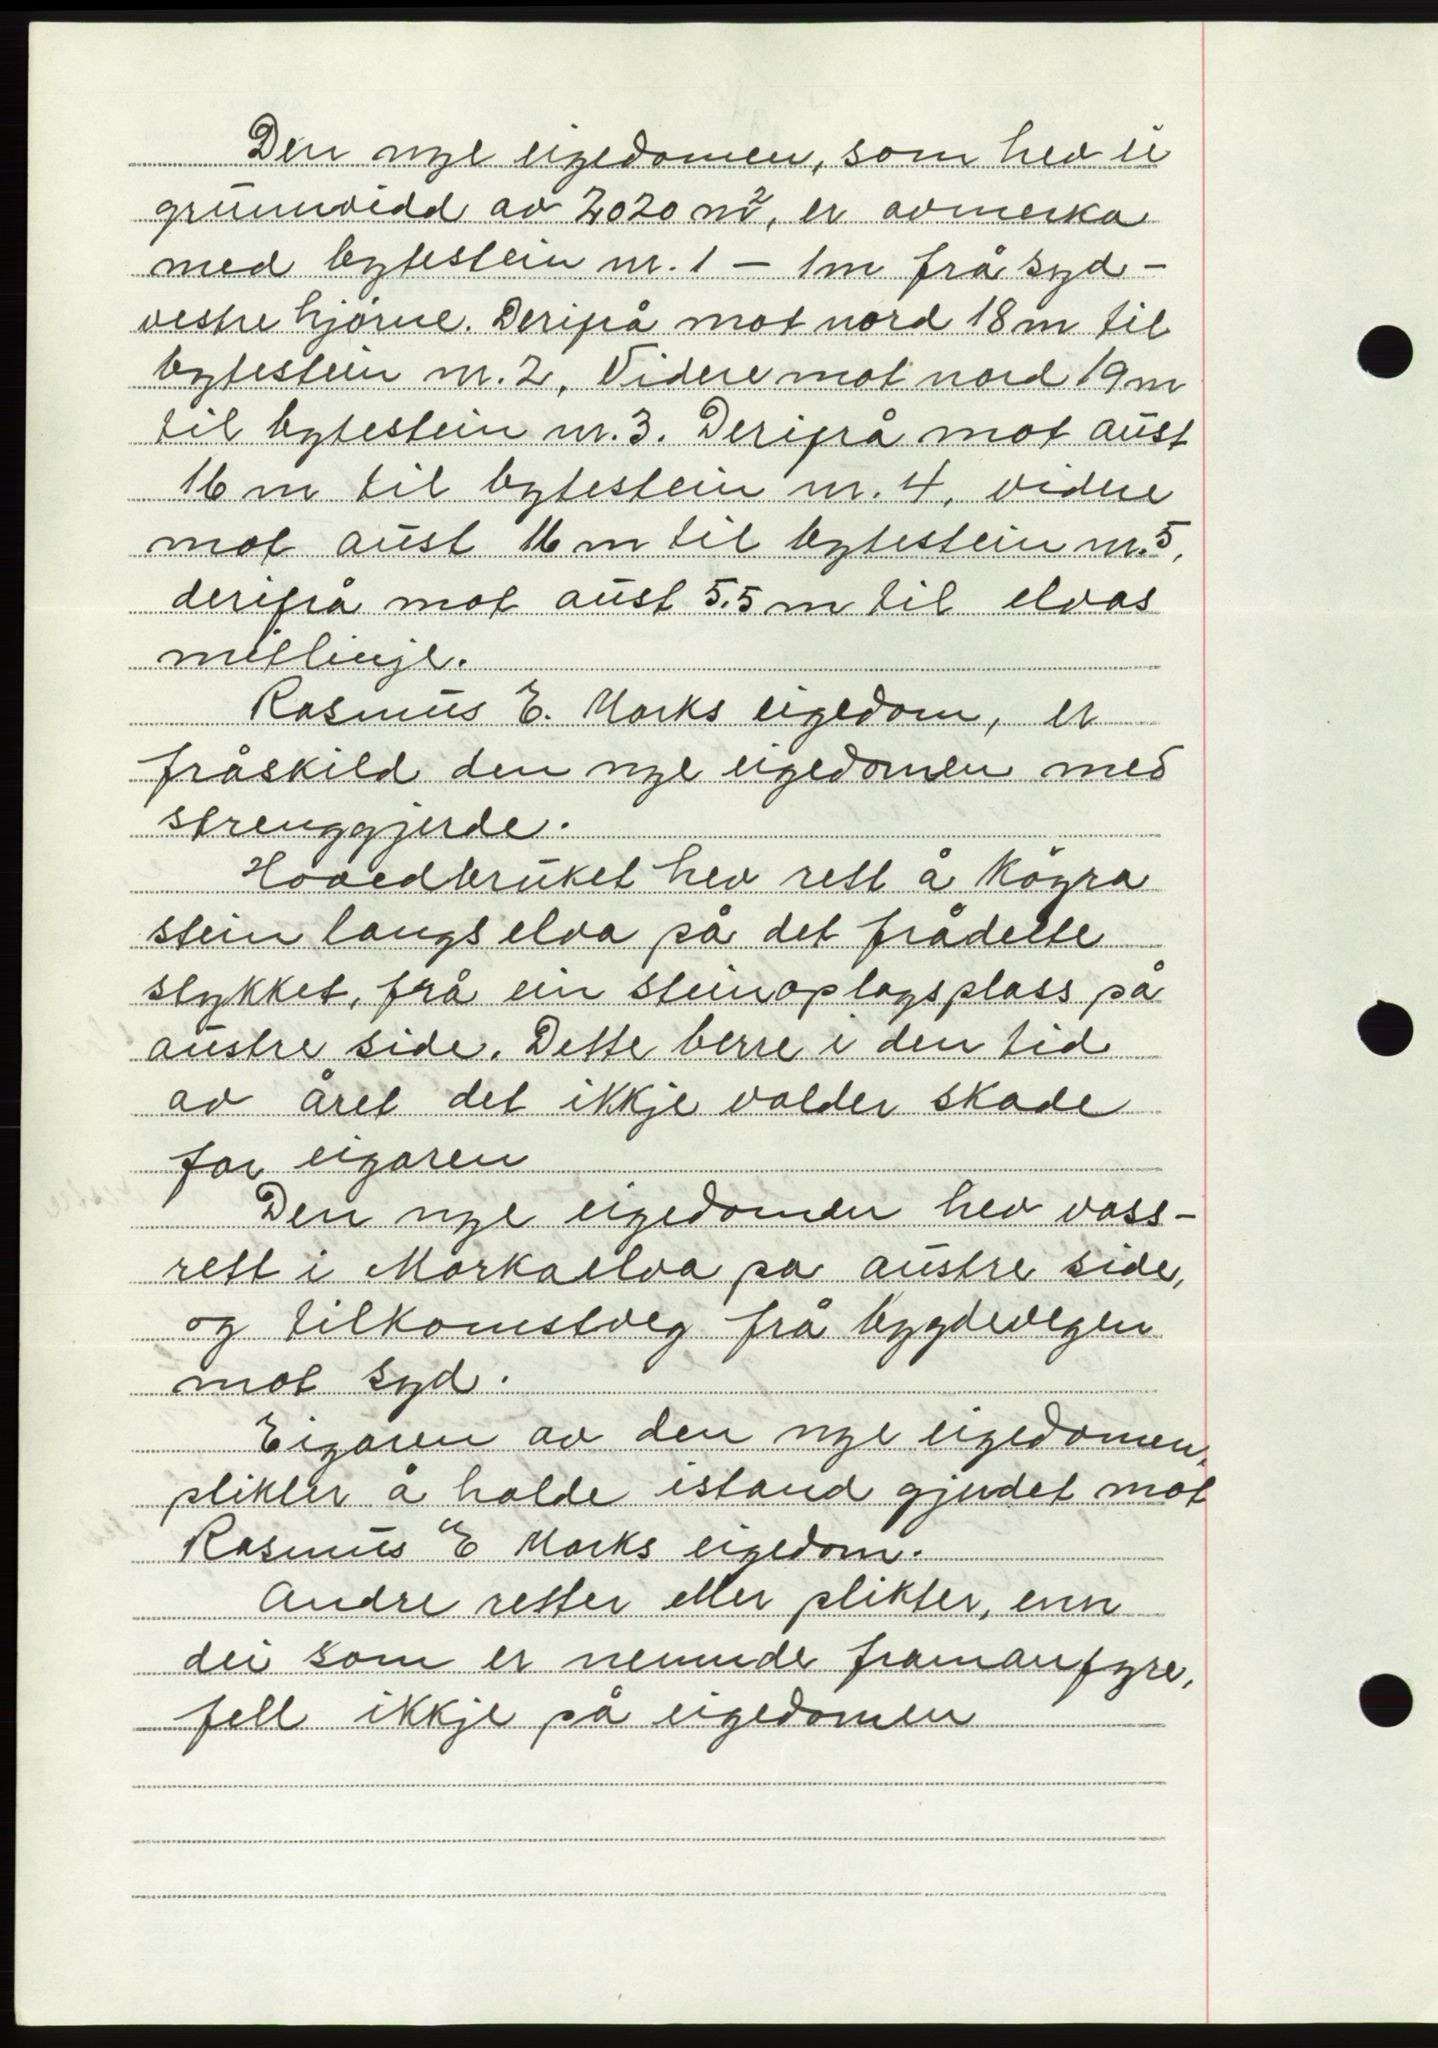 Den nye eigedomen, som hev ei
grunnvidd av 2020 m², er avmerka
med bytestein nr. 1 – 1m frå syd-
vestre hjörne. Derifrå mot nord 18 m til
bytestein nr. 2, Videre mot nord 19 m
til bytestein nr. 3. Derifrå mot aust
16 m til bytestein nr. 4, videre
mot aust 16 m til bytestein nr. 5,
derifrå mot aust 5.5 m til elvas
mitlinje.
Rasmus E. Marks eigedom, er
fråskild den nye eigedomen med
strenggjerde.
Hovedbruket hev rett å kögra
stein langs elva på det frådelte
stykket, frå ein steinoplagsplass på
austre side. Dette berre i den tid
av året det ikkje valder skade
for eigaren
Den nye eigedomen hev vass-
rett i Morkaelva pa austre side,
og tilkomstveg frå bygdevegen
mot syd.
Eigaren av den nye eigedomen,
plikter å halde istand gjerdet mot
Rasmus E Marks eigedom.
Andre retter eller plikter, enn
dei som er nemnde framanfyre,
fell ikkje på eigedomen